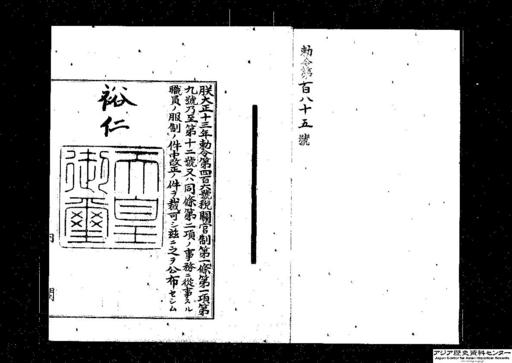 勅令第百八十五號
朕大正十三年勅令第四百六號税關官制第一條第一項第
九號乃至第十二號又ハ同條第二項ノ事務ニ從事スル
職員ノ服制ノ件中改正ノ件ヲ裁可シ茲ニ之ヲ公布セシム
裕仁
天皇
御璽
アジア歴史資料センター
Japan Center for Asian Historical Records